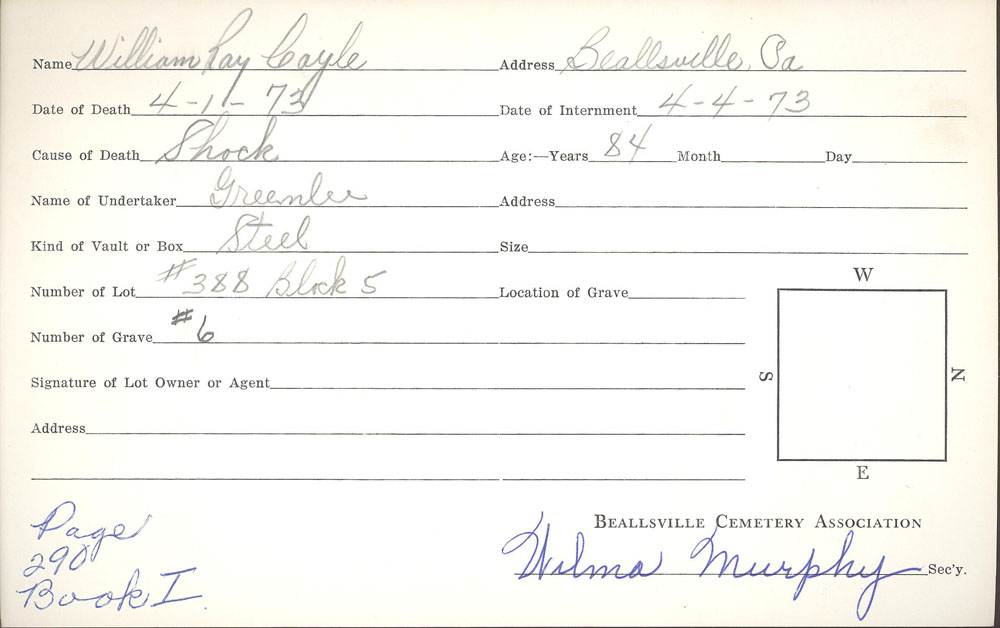 Name William Ray Cayle Address Beallsville, Pa
Date of Death 4-1-73 Date of Internment 4-4-73
Cause of Death Shock Age:—Years 84 Month Day
Name of Undertaker Greenlee Address
Kind of Vault or Box Steel Size
Number of Lot #388 Block 5 Location of Grave
W
Number of Grave #6
Signature of Lot Owner or Agent
S N
Address
E
Page
290
Book I.
BEALLSVILLE CEMETERY ASSOCIATION
Wilma Murphy Sec'y.